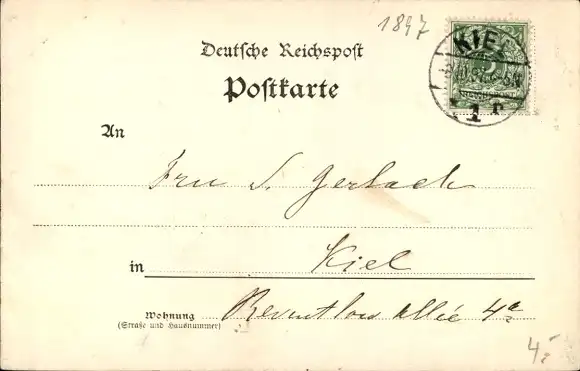 1897
Deutsche Reichspost
Postkarte
KIEL
1
An
Frau S. Gerlach
in Kiel
Wohnung Reventlow allée 4a
(Straße und Hausnummer)
4,-